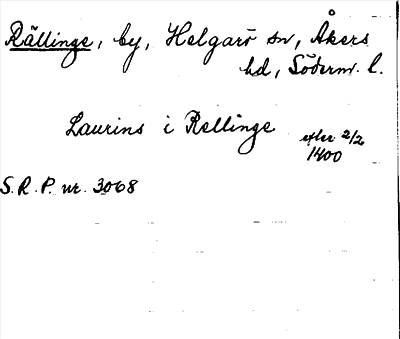 Rällinge, by, Helgarö sn, Åkers
hd, Söderm. l.
Laurins i Rellinge efter 2/2
1400
S.R.P. nr. 3068